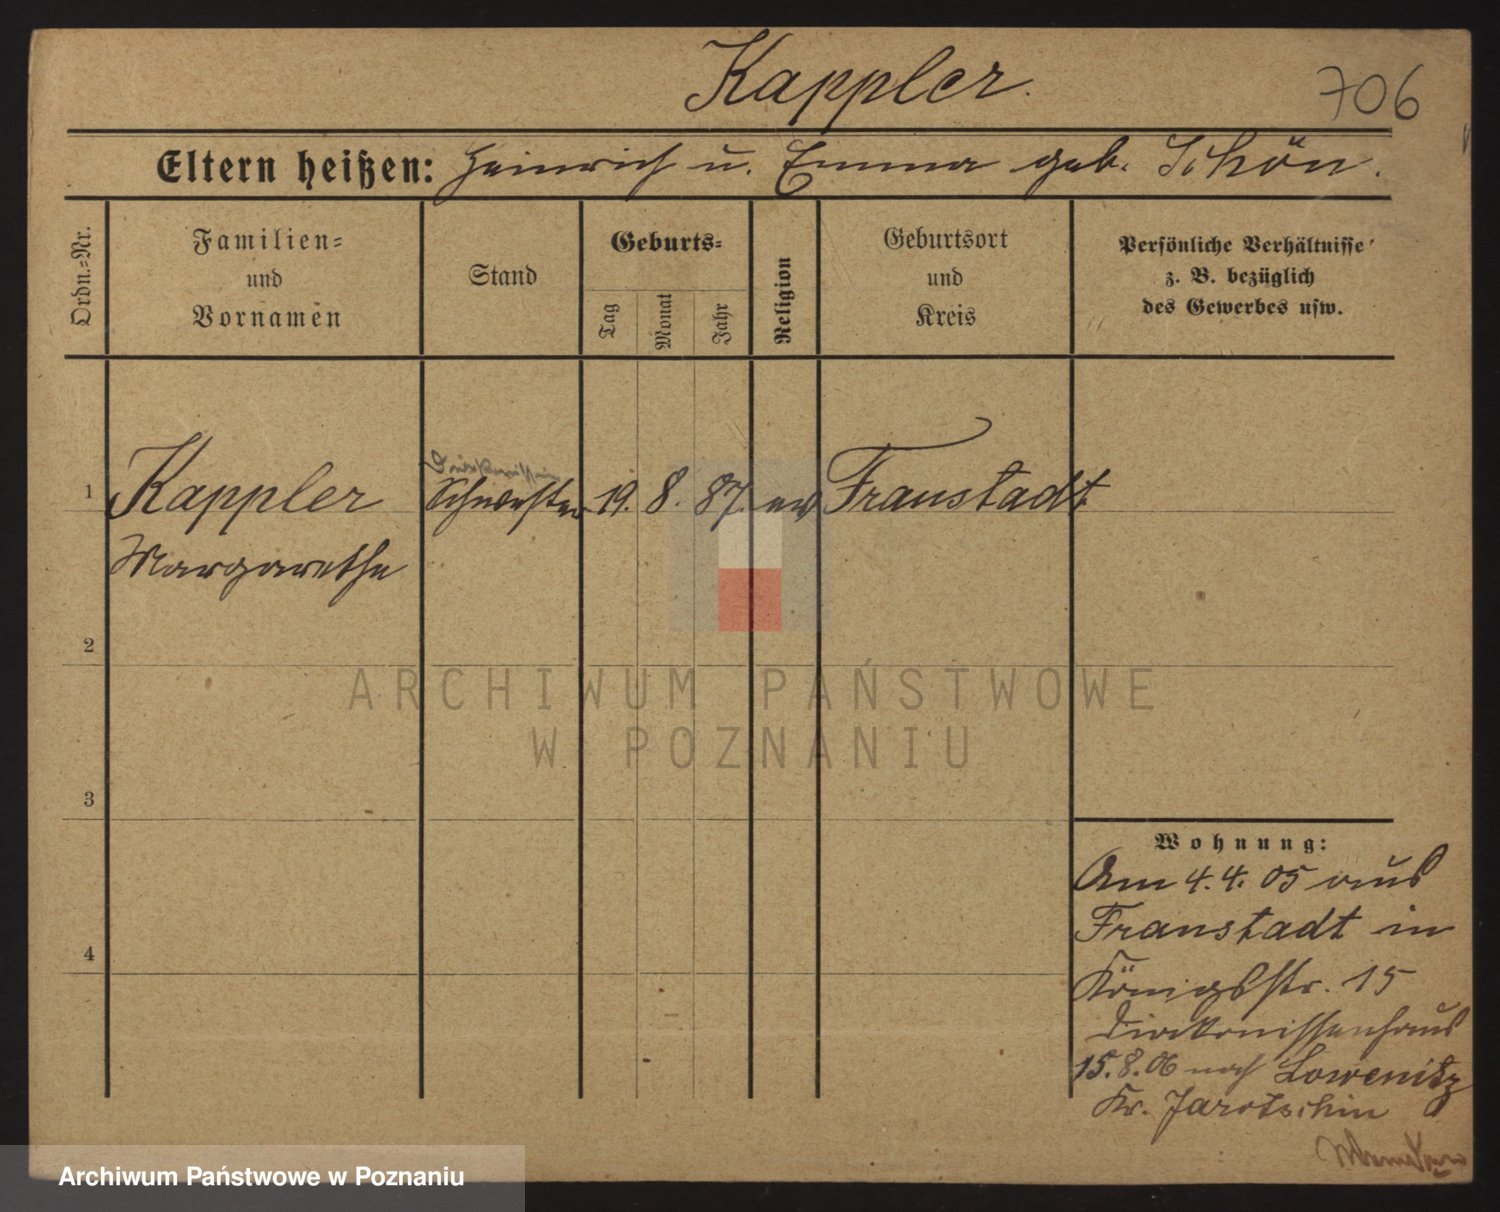 Kappler.
706
Eltern heißen: Heinrich u. Emma geb. Schön.
Ordn.-Nr.
Familien-
und
Vornamen
Stand
Geburts-
Tag
Monat
Jahr
Religion
Geburtsort
und
Kreis
Persönliche Verhältnisse
z. B. bezüglich
des Gewerbes usw.
Diakonissin
1 Kappler Schwester 19. 8. 87. ev Fraustadt
Margarethe
2
ARCHIWUM PAŃSTWOWE
W POZNANIU
3
Wohnung:
Am 4.4.05 aus
Fraustadt in
4
Königsstr. 15
Diakonissenhaus
15.8.06 nach Lowenitz
Kr. Jarotschin
Archiwum Państwowe w Poznaniu